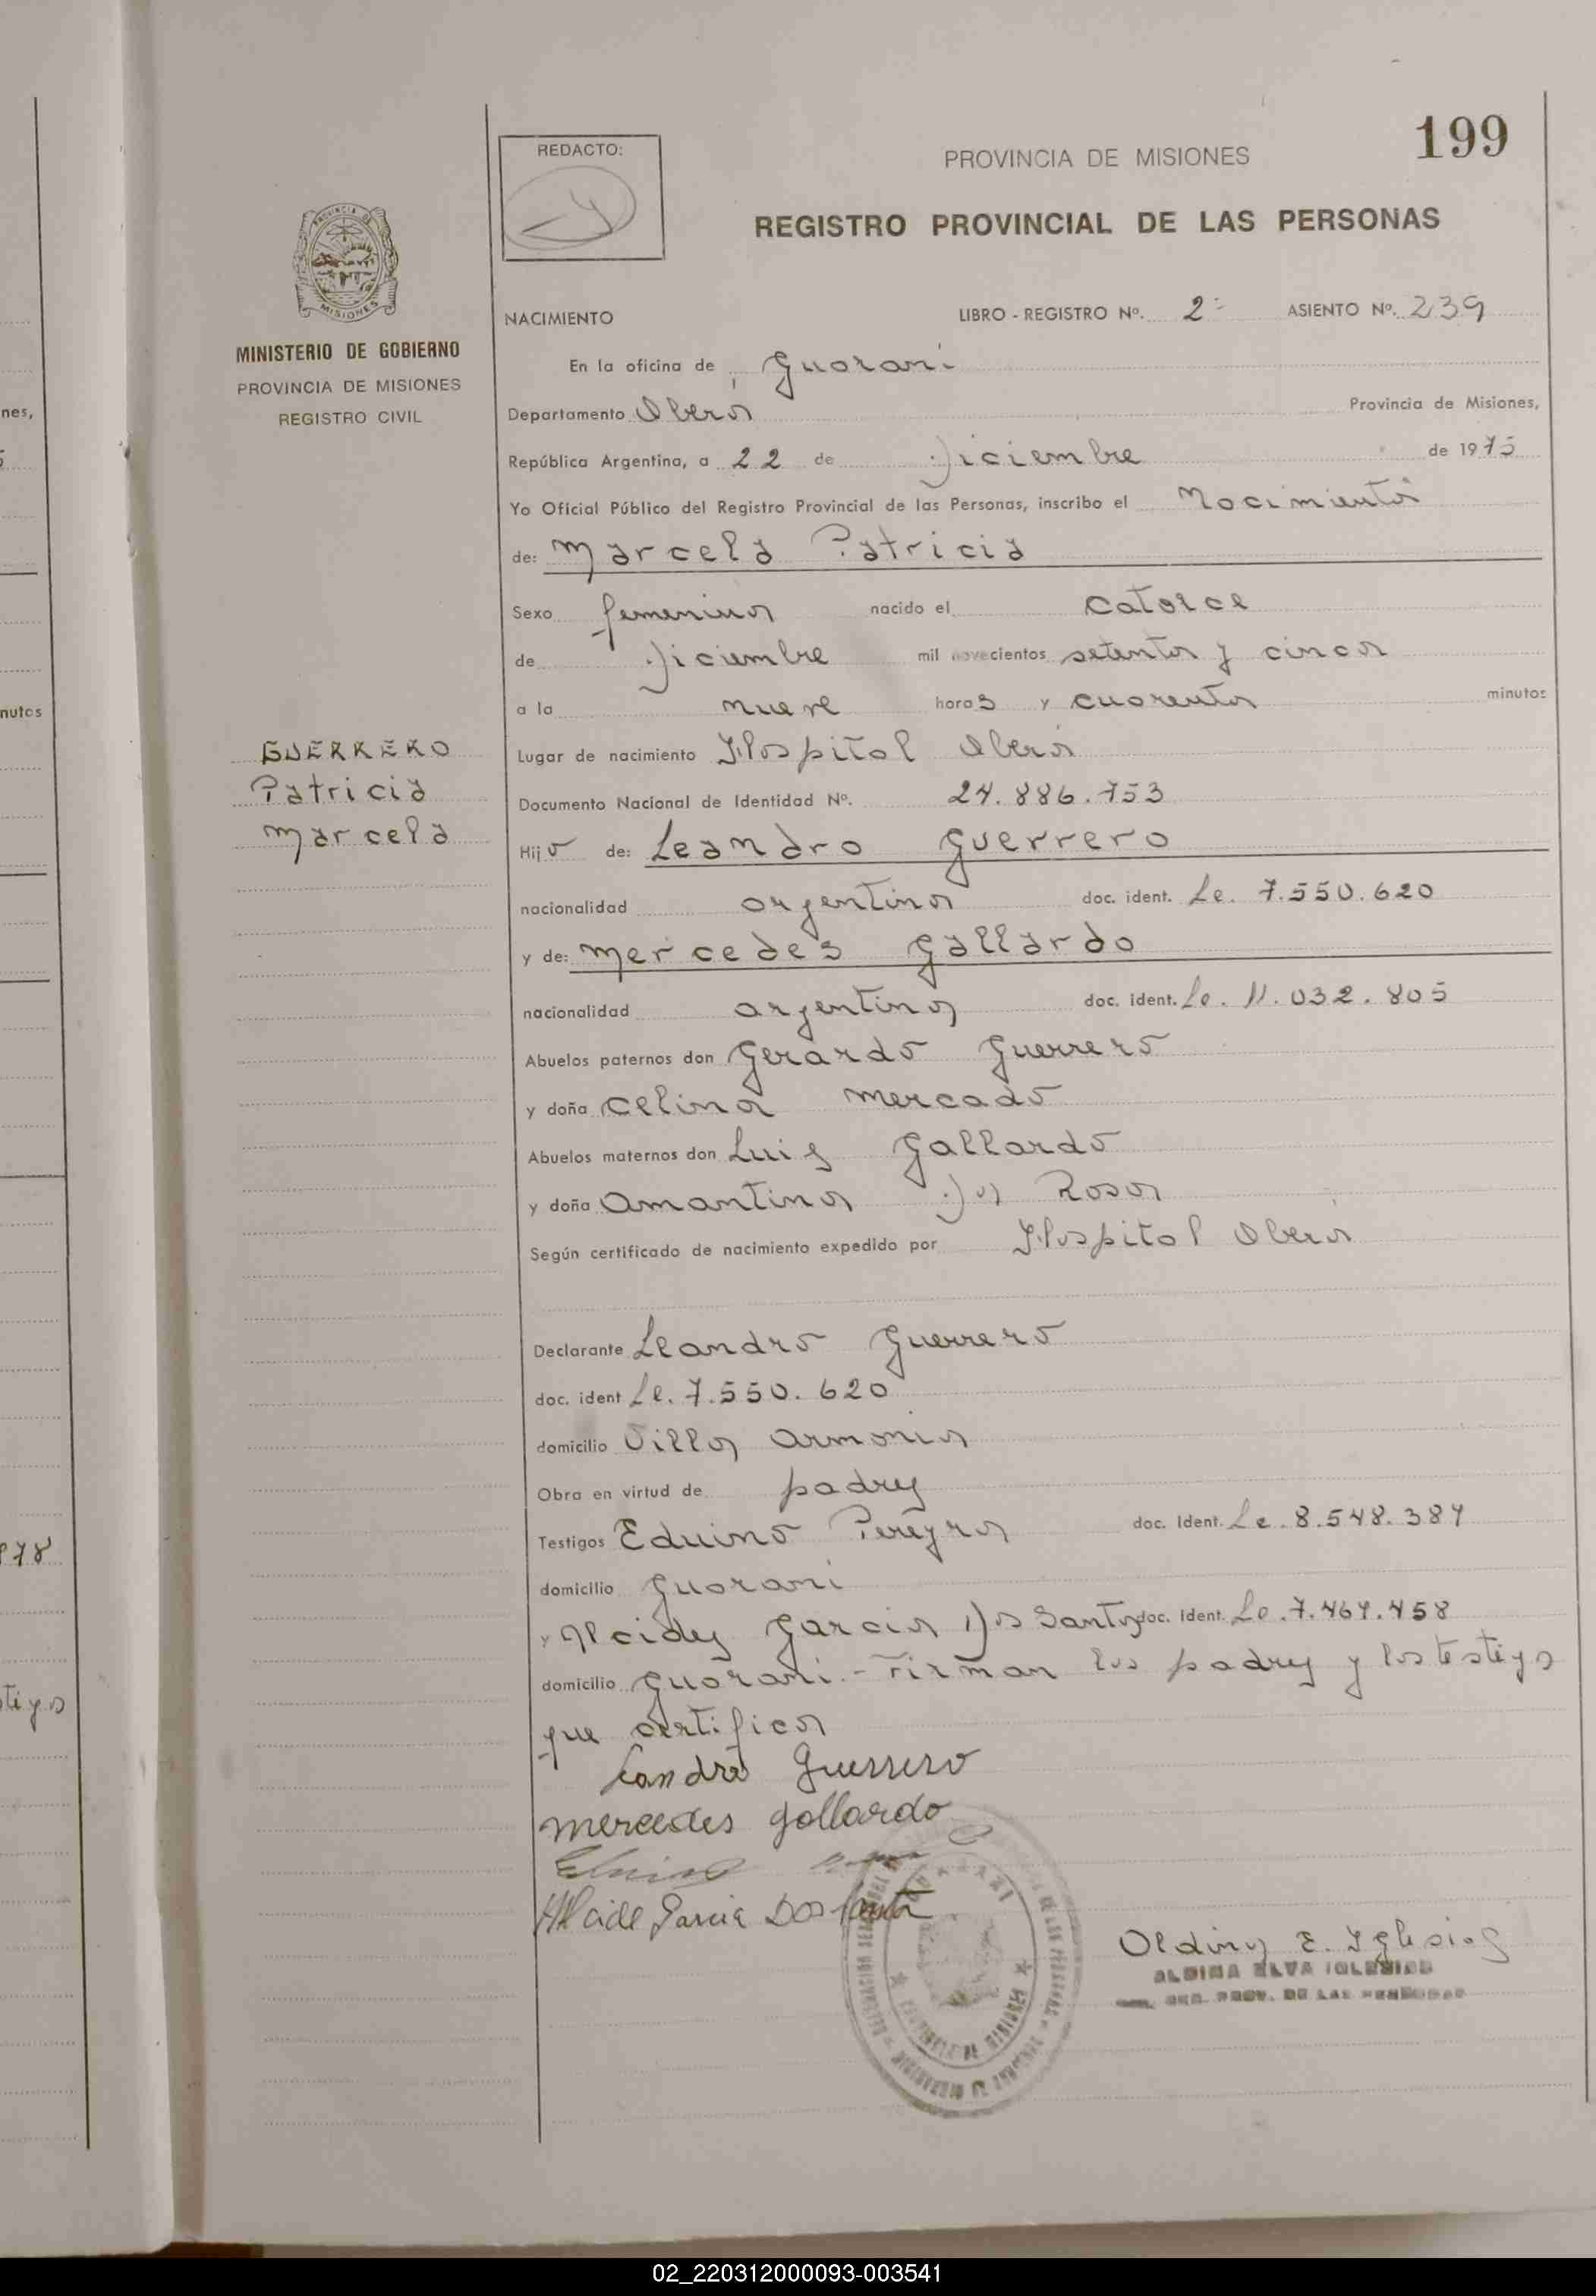 199
REDACTO:
PROVINCIA DE MISIONES
REGISTRO PROVINCIAL DE LAS PERSONAS
PROVINCIA DE
MISIONES
MINISTERIO DE GOBIERNO
PROVINCIA DE MISIONES
REGISTRO CIVIL
NACIMIENTO LIBRO - REGISTRO Nº. 2= ASIENTO Nº. 239
En la oficina de Guarani
Departamento Obera Provincia de Misiones,
República Argentina, a 22 de Diciembre de 1975
Yo Oficial Público del Registro Provincial de las Personas, inscribo el Nacimiento
de: Marcela Patricia
Sexo femenino nacido el catorce
de Diciembre mil novecientos setenta y cinco
a la nueve horas y cuarenta minutos
Lugar de nacimiento Hospital Obera
GUERRERO
Patricia
Marcela
Documento Nacional de Identidad Nº. 24.886.753
Hijo de: Leandro Guerrero
nacionalidad argentina doc. ident. Le. 7.550.620
y de: Mercedes Gallardo
nacionalidad argentina doc. ident. Le. 11.032.805
Abuelos paternos don Gerardo Guerrero
y doña Celina Mercado
Abuelos maternos don Luis Gallardo
y doña Amantina Da Rosa
Según certificado de nacimiento expedido por Hospital Obera
Declarante Leandro Guerrero
doc. ident Le. 7.550.620
domicilio Villa Armonia
Obra en virtud de padre
Testigos Eduino Pereyra doc. Ident. Le. 8.548.387
domicilio Guarani
y Alcides Garcia Dos Santos doc. Ident. Le. 7.467.458
domicilio Guarani.- Firman los padres y los testigos
que certifico
Leandro Guerrero
mercedes gallardo
Alcide Garcia Dos Santo
Oldina E. Iglesias
OLDINA ELVA IGLESIAS
REG. PROV. DE LAS PERSONAS
nes,
nutos
978
02_220312000093-003541